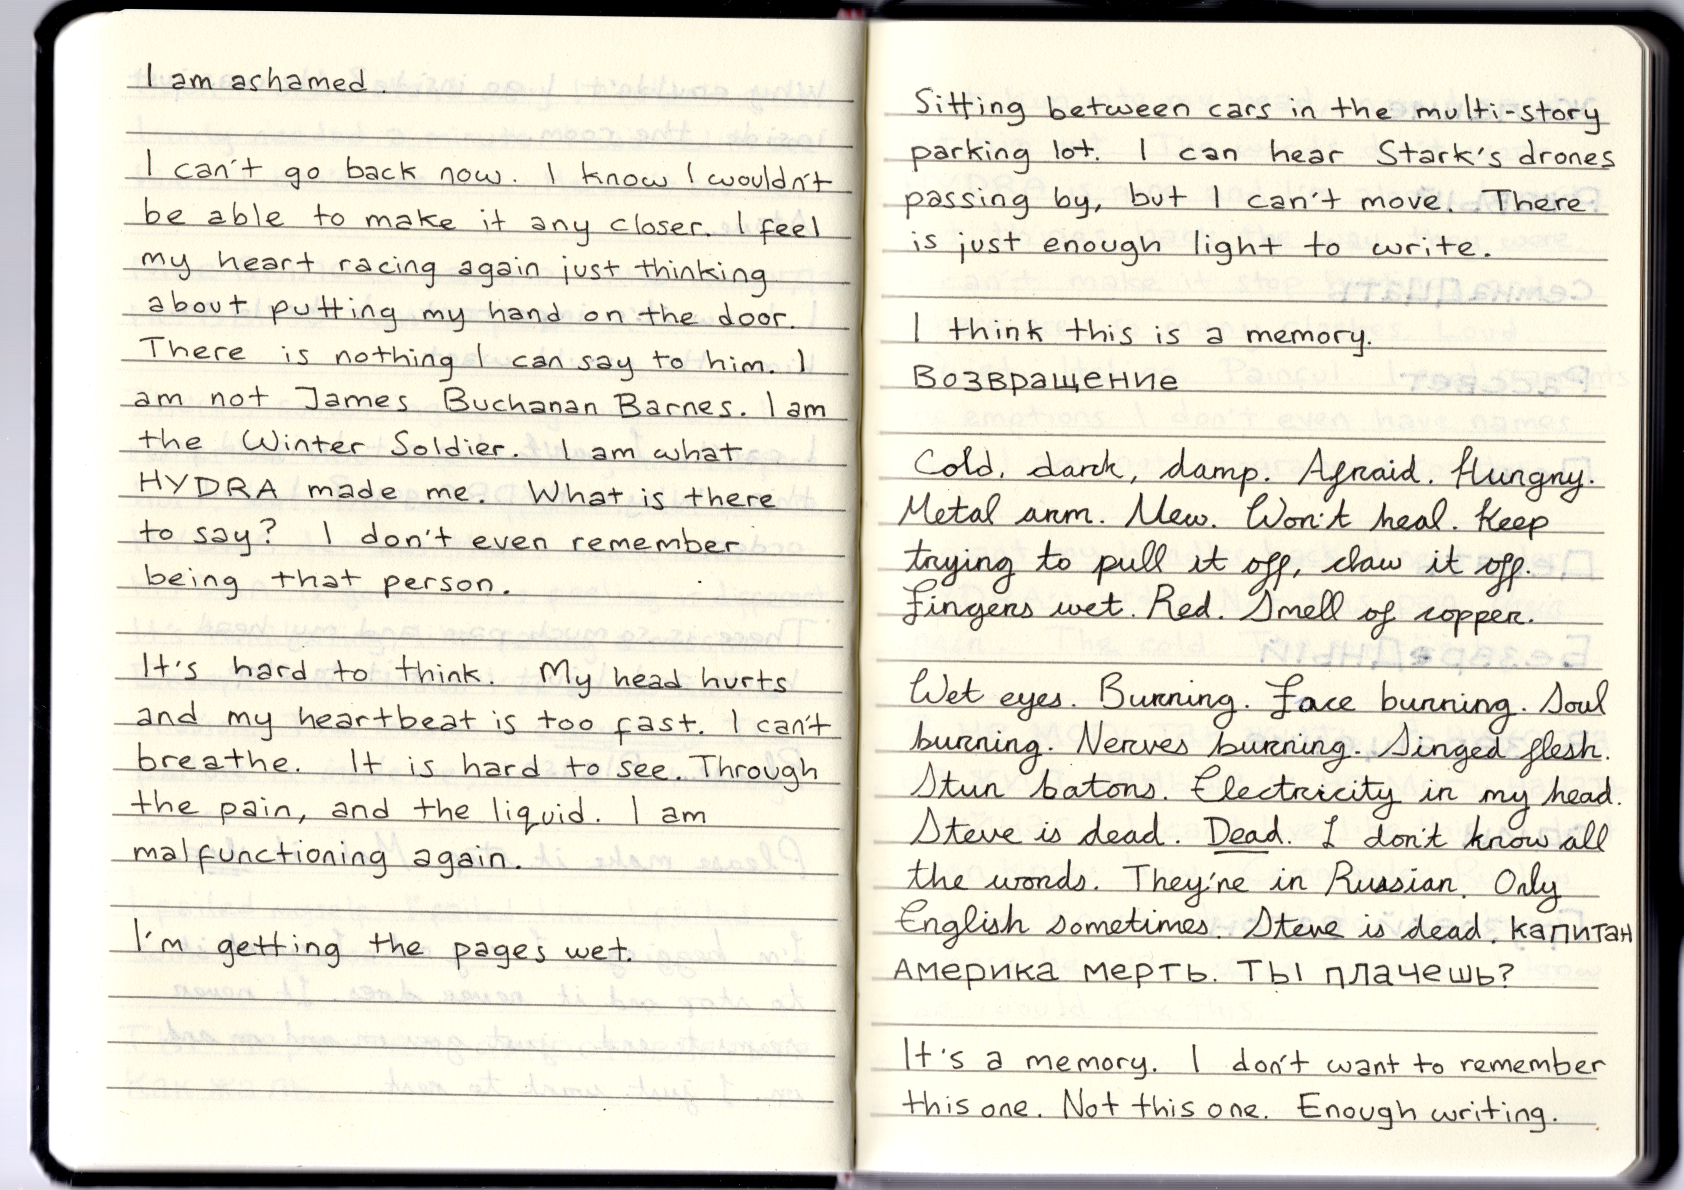 I am ashamed.
I can't go back now. I know I wouldn't
be able to make it any closer. I feel
my heart racing again just thinking
about putting my hand on the door.
There is nothing I can say to him. I
am not James Buchanan Barnes. I am
the Winter Soldier. I am what
HYDRA made me. What is there
to say? I don't even remember
being that person.
It's hard to think. My head hurts
and my heartbeat is too fast. I can't
breathe. It is hard to see. Through
the pain, and the liquid. I am
malfunctioning again.
I'm getting the pages wet.
Sitting between cars in the multi-story
parking lot. I can hear Stark's drones
passing by, but I can't move. There
is just enough light to write.
I think this is a memory.
Возвращение
Cold, dark, damp. Afraid. Hungry.
Metal arm. New. Won't heal. Keep
trying to pull it off, claw it off.
Fingers wet. Red. Smell of copper.
Wet eyes. Burning. Face burning. Soul
burning. Nerves burning. Singed flesh.
Stun batons. Electricity in my head.
Steve is dead. Dead. I don't know all
the words. They're in Russian. Only
English sometimes. Steve is dead. капитан
Америка мерть. Ты плачешь?
It's a memory. I don't want to remember
this one. Not this one. Enough writing.